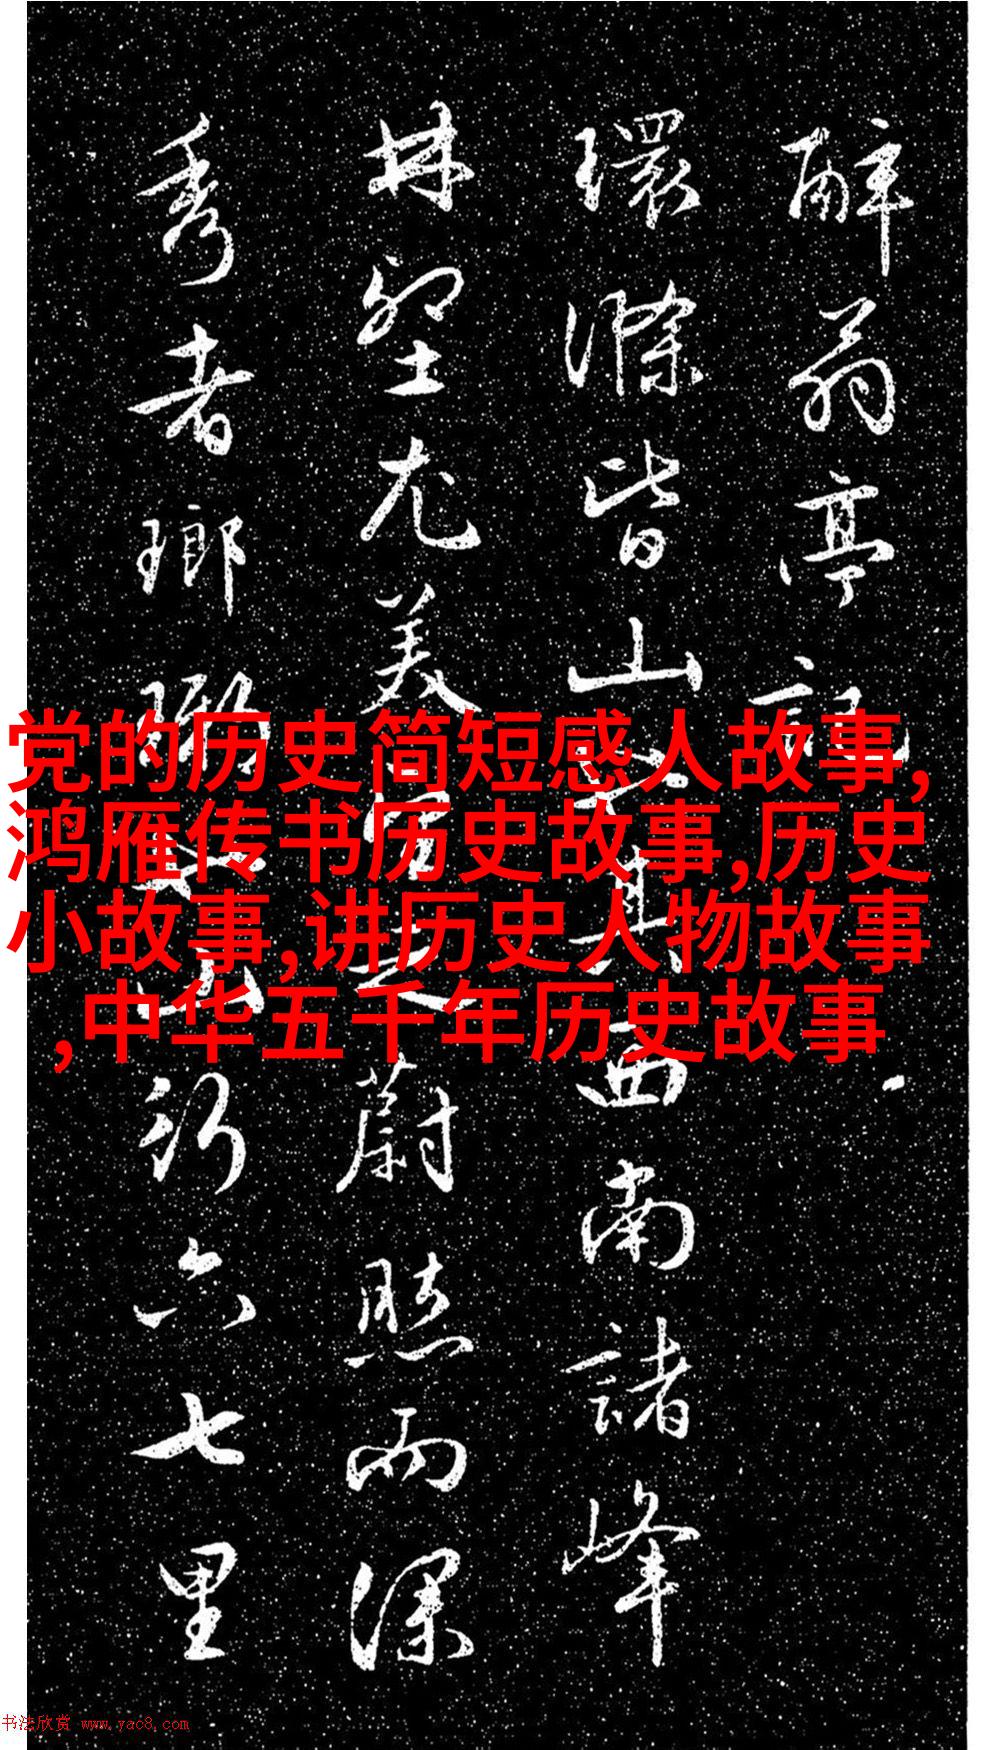 醉翁亭記
環滁皆山其西南諸峰
林壑尤美望之蔚然而深
秀者瑯琊也山行六七里
党的历史简短感人故事,
鸿雁传书历史故事,历史
小故事,讲历史人物故事
,中华五千年历史故事
书法欣赏 www.yac8.com